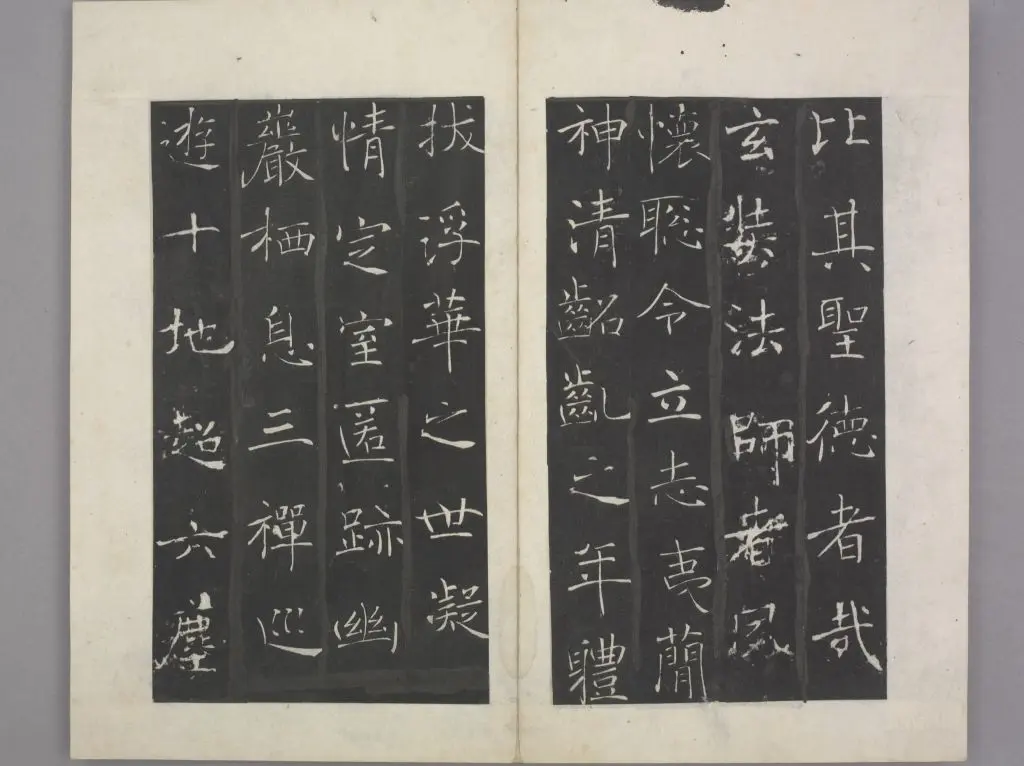 比其聖德者哉
玄奘法師者夙
懷聡令立志夷簡
神清齠齔之年體
拔浮華之世凝
情定室匿跡幽
巖栖息三禪巡
遊十地超六塵